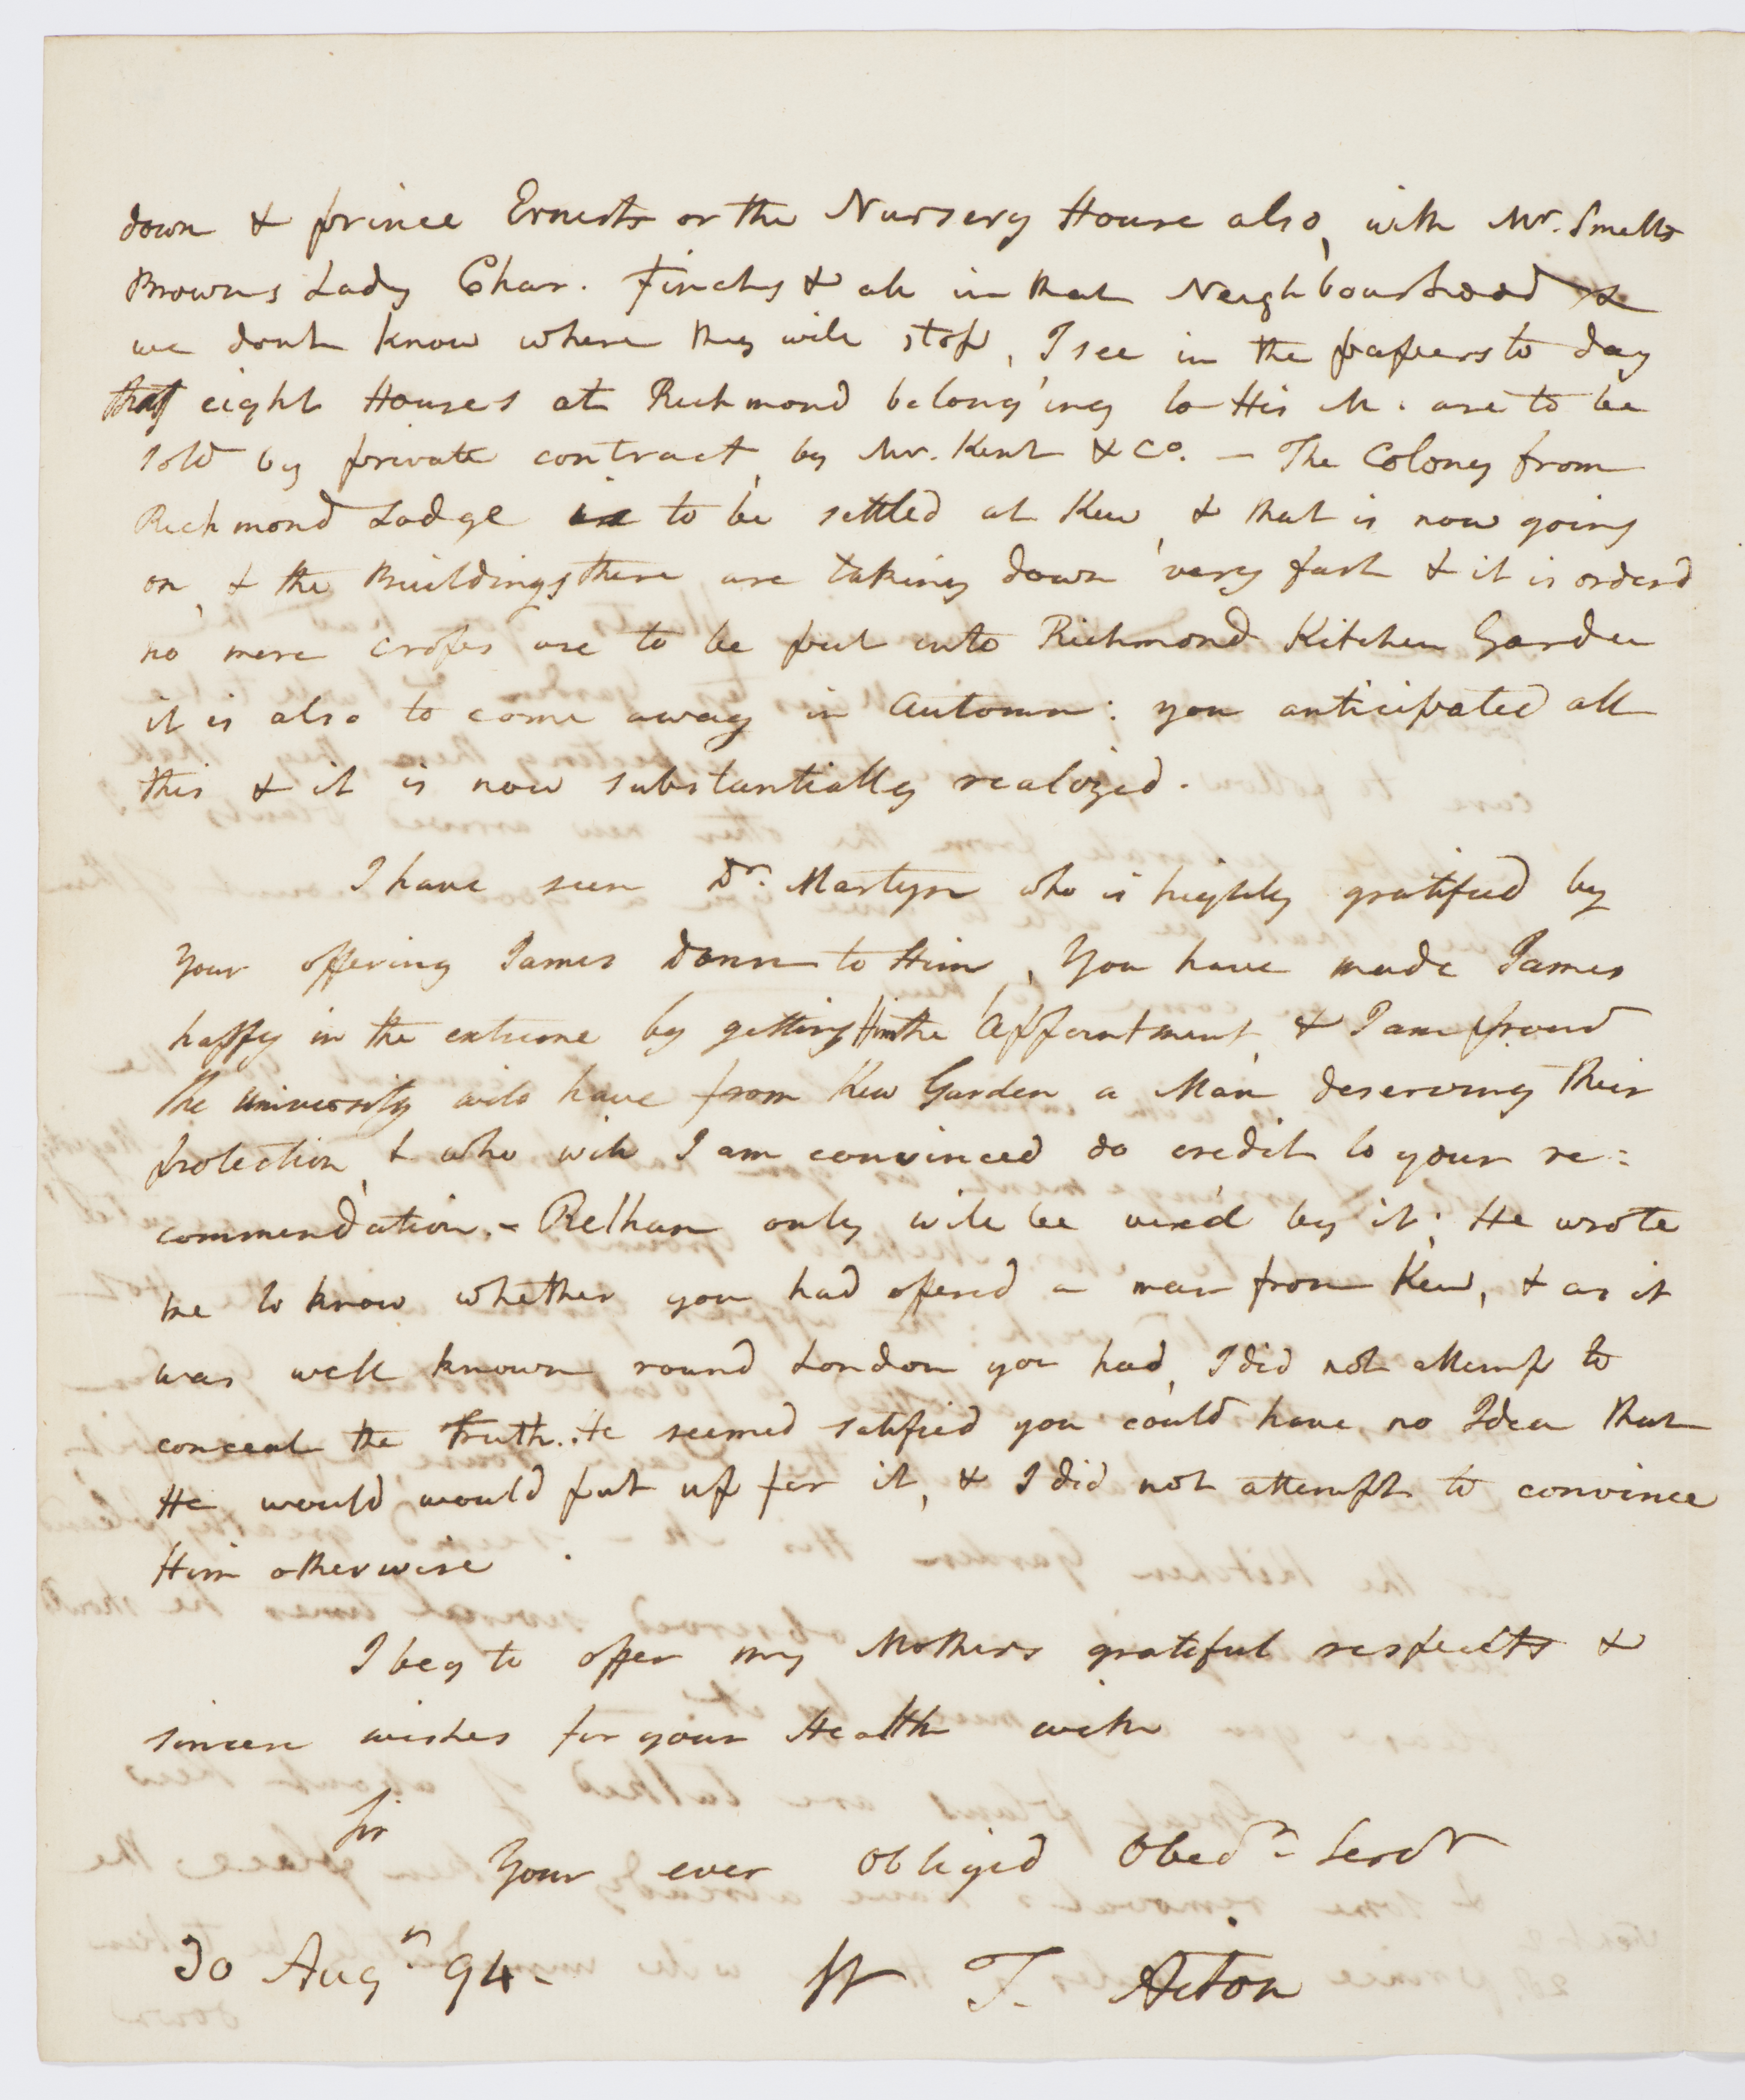 down & prince Ernests or the Nursery House also, with Mr. Smelts
Browns Lady Char. Finchs & all in that Neighbourhood &
we dont know where they will stop, I see in the papers to day
that eight Houses at Richmond belonging to His M. are to be
sold by private contract, by Mr. Kent & Co. – The Colony from
Richmond Lodge is to be settled at Kew, & that is now going
on, & the Buildings there are taking down very fast & it is orderd
no more crops are to be put into Richmond Kitchen Garden
it is also to come away in Autumn: you anticipated all
this & it is now substantially realized.
I have seen Dr. Martyn who is highly gratified by
Your offering James Donn to Him, You have made James
happy in the extreme by getting Him the Appointment, & I am proud
the University will have from Kew Garden a Man deserving their
protection, & who will I am convinced do credit to your re:
commendation. – Relhan only will be vexd by it; He wrote
me to know whether you had offered a man from Kew, & as it
was well known round London you had, I did not attemp to
conceal the Truth. He seemed satified you could have no Idea that
He would would put up for it, & I did not attempt to convince
Him otherwise .
I beg to offer my Mothers grateful respects &
sincere wishes for your Health with
Sir
Your ever obliged Obedt Servt
30 Augt 94 –
W T. Aiton